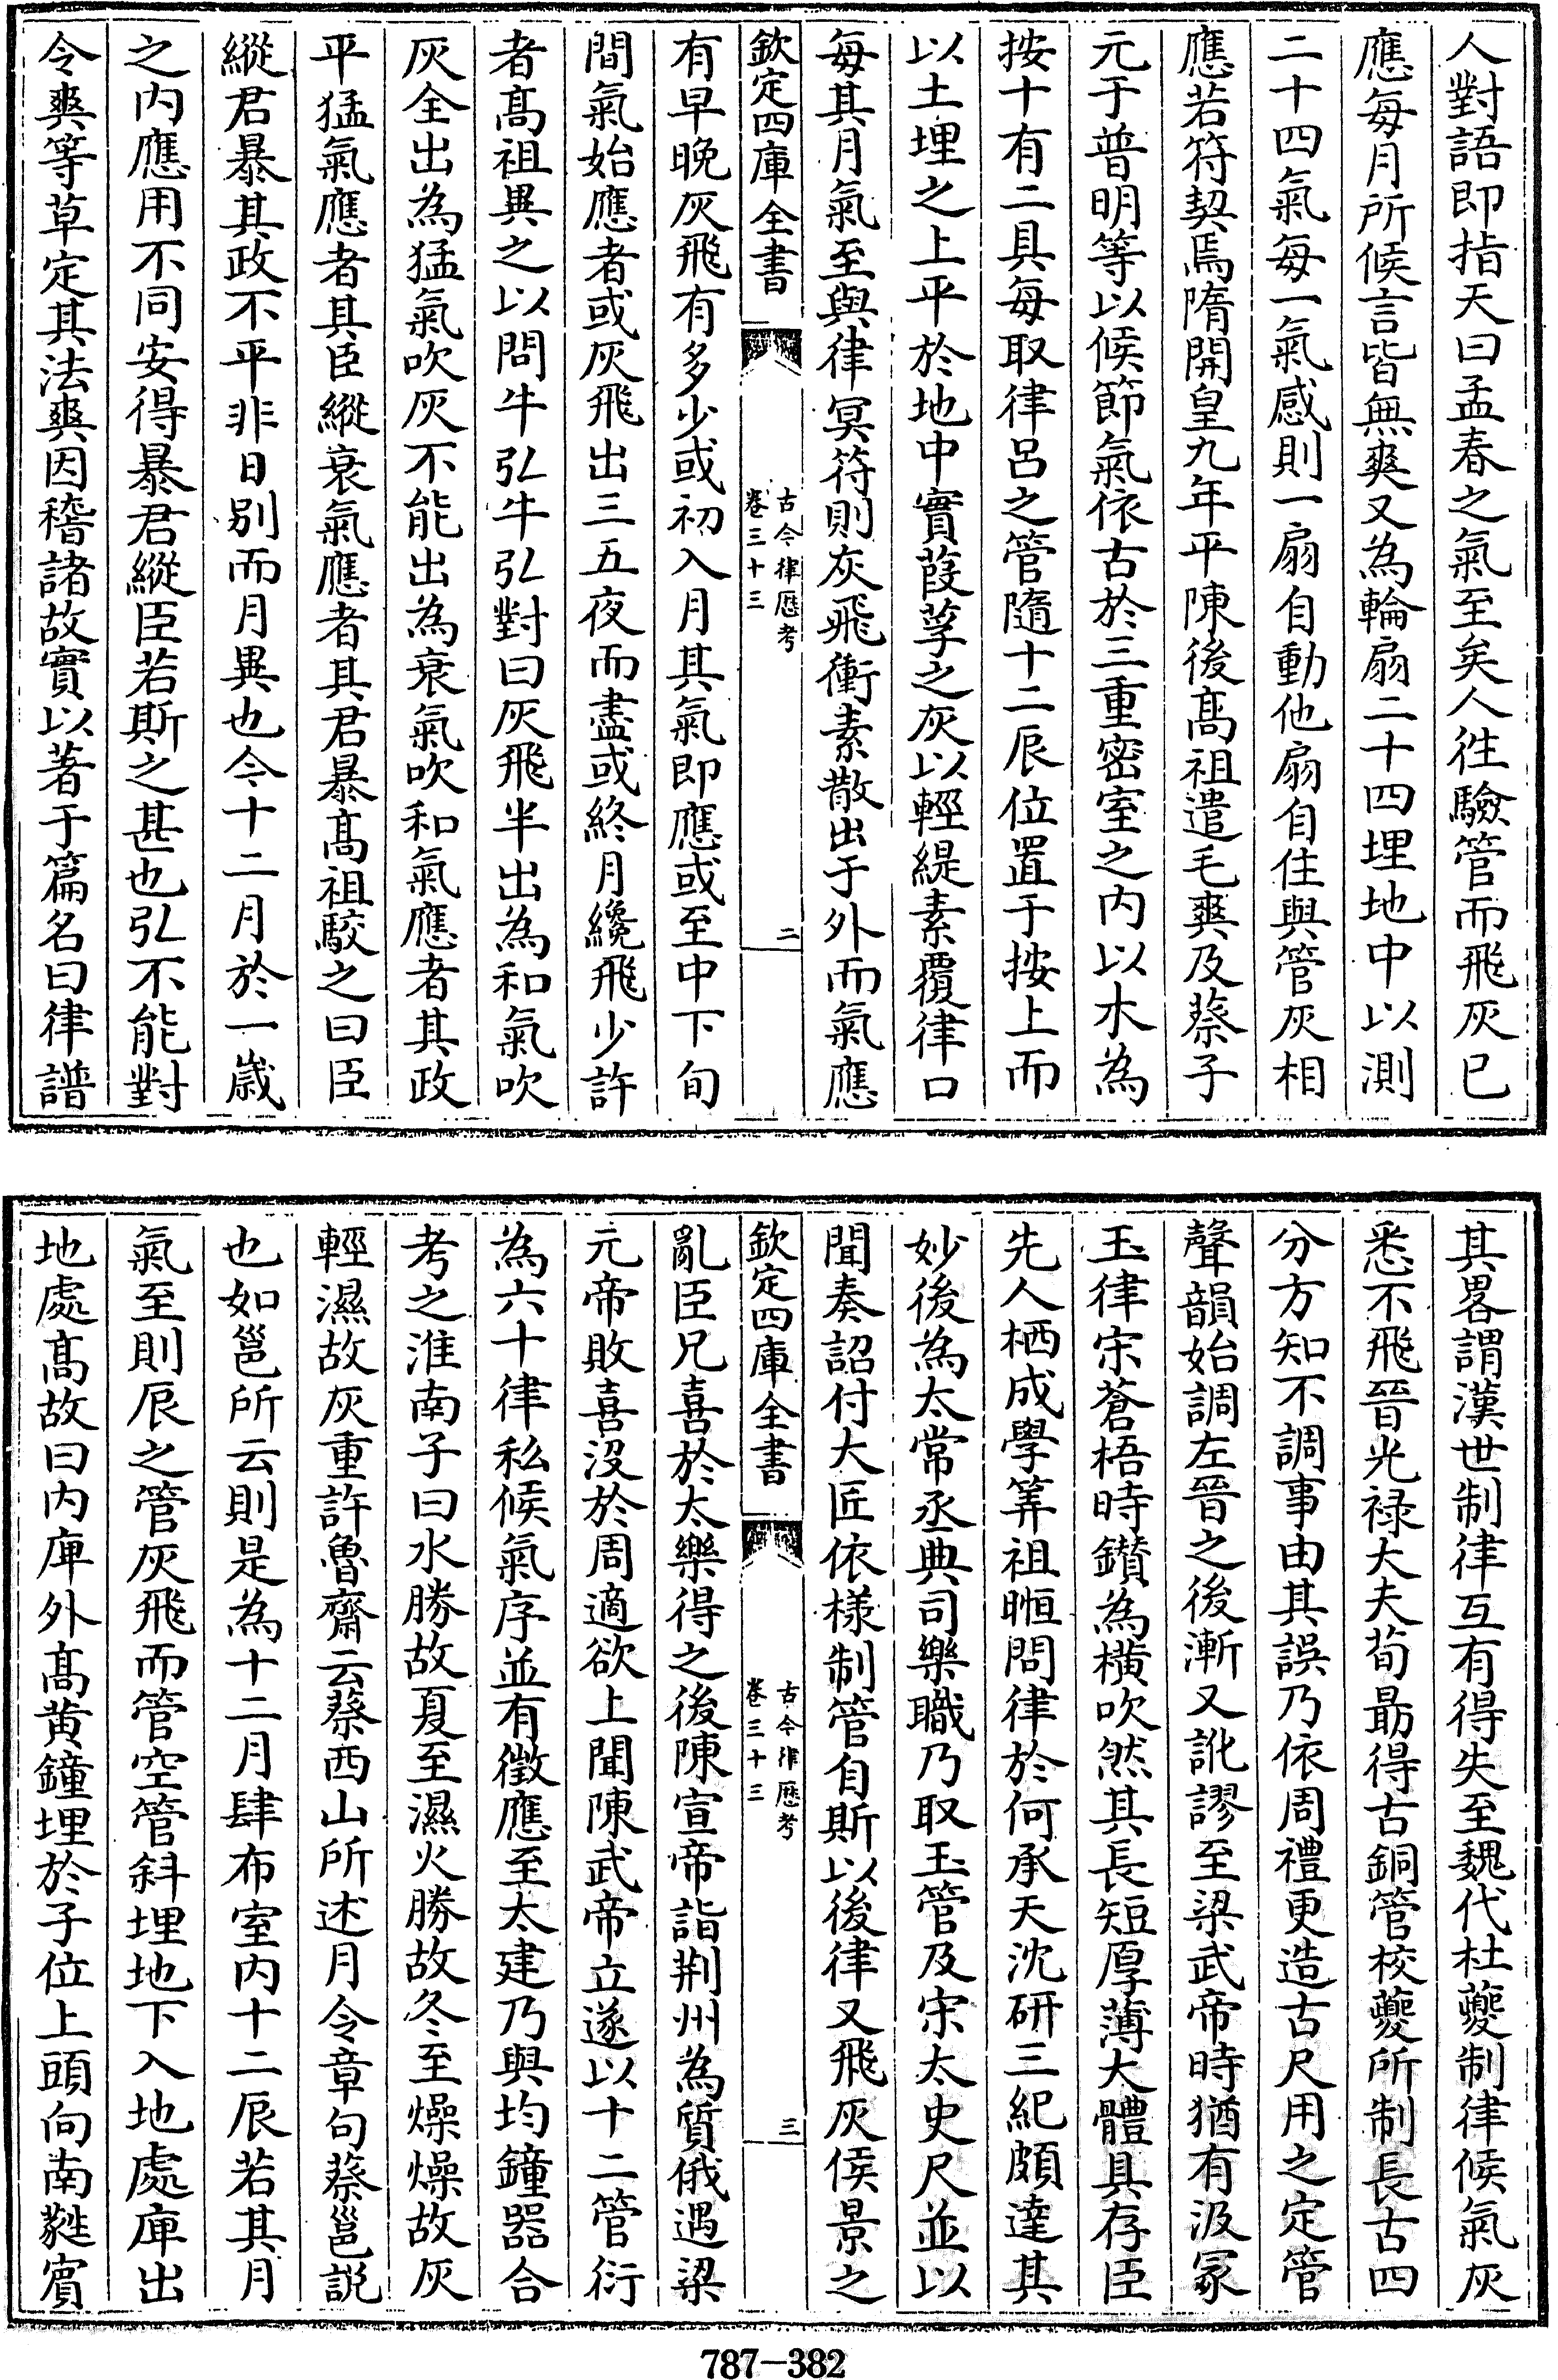 人對語即指天曰孟春之氣至矣人徃驗管而飛灰已
應每月所候言皆無爽又為輪扇二十四埋地中以測
二十四氣每一氣感則一扇自動他扇自住與管灰相
應若符契焉隋開皇九年平陳後髙祖遣毛爽及蔡子
元于普明等以候節氣依古於三重密室之内以木為
按十有二具每取律吕之管隨十二辰位置于按上而
以土埋之上平於地中實葭莩之灰以輕緹素覆律口
每其月氣至與律冥符則灰飛衝素散出于外而氣應
欽定四庫全書
古今律厯考
卷三十三
二
有早晚灰飛有多少或初入月其氣即應或至中下旬
間氣始應者或灰飛出三五夜而盡或終月纔飛少許
者髙祖異之以問牛弘牛弘對曰灰飛半出為和氣吹
灰全出為猛氣吹灰不能出為衰氣吹和氣應者其政
平猛氣應者其臣縱衰氣應者其君暴髙祖駮之曰臣
縱君暴其政不平非日別而月異也今十二月於一歲
之内應用不同安得暴君縱臣若斯之甚也弘不能對
令爽等草定其法爽因稽諸故實以著于篇名曰律譜
其畧謂漢世制律互有得失至魏代杜夔制律候氣灰
悉不飛晉光禄大夫荀勗得古銅管校夔所制長古四
分方知不調事由其誤乃依周禮更造古尺用之定管
聲韻始調左晉之後漸又訛謬至梁武帝時猶有汲冢
玉律宋蒼梧時鑚為横吹然其長短厚薄大體具存臣
先人栖成學筭祖暅問律於何承天沈研三紀頗達其
妙後為太常丞典司樂職乃取玉管及宋太史尺並以
聞奏詔付大匠依様制管自斯以後律又飛灰侯景之
欽定四庫全書
古今律厯考
卷三十三
三
亂臣兄喜於太樂得之後陳宣帝詣荆州為質俄遇梁
元帝敗喜沒於周適欲上聞陳武帝立遂以十二管衍
為六十律私候氣序並有徴應至太建乃與均鐘器合
考之淮南子曰水勝故夏至濕火勝故冬至燥燥故灰
輕濕故灰重許魯齋云蔡西山所述月令章句蔡邕説
也如邕所云則是為十二月肆布室内十二辰若其月
氣至則辰之管灰飛而管空管斜埋地下入地處庳出
地處髙故曰内庳外髙黄鐘埋於子位上頭向南蕤賓
787-382